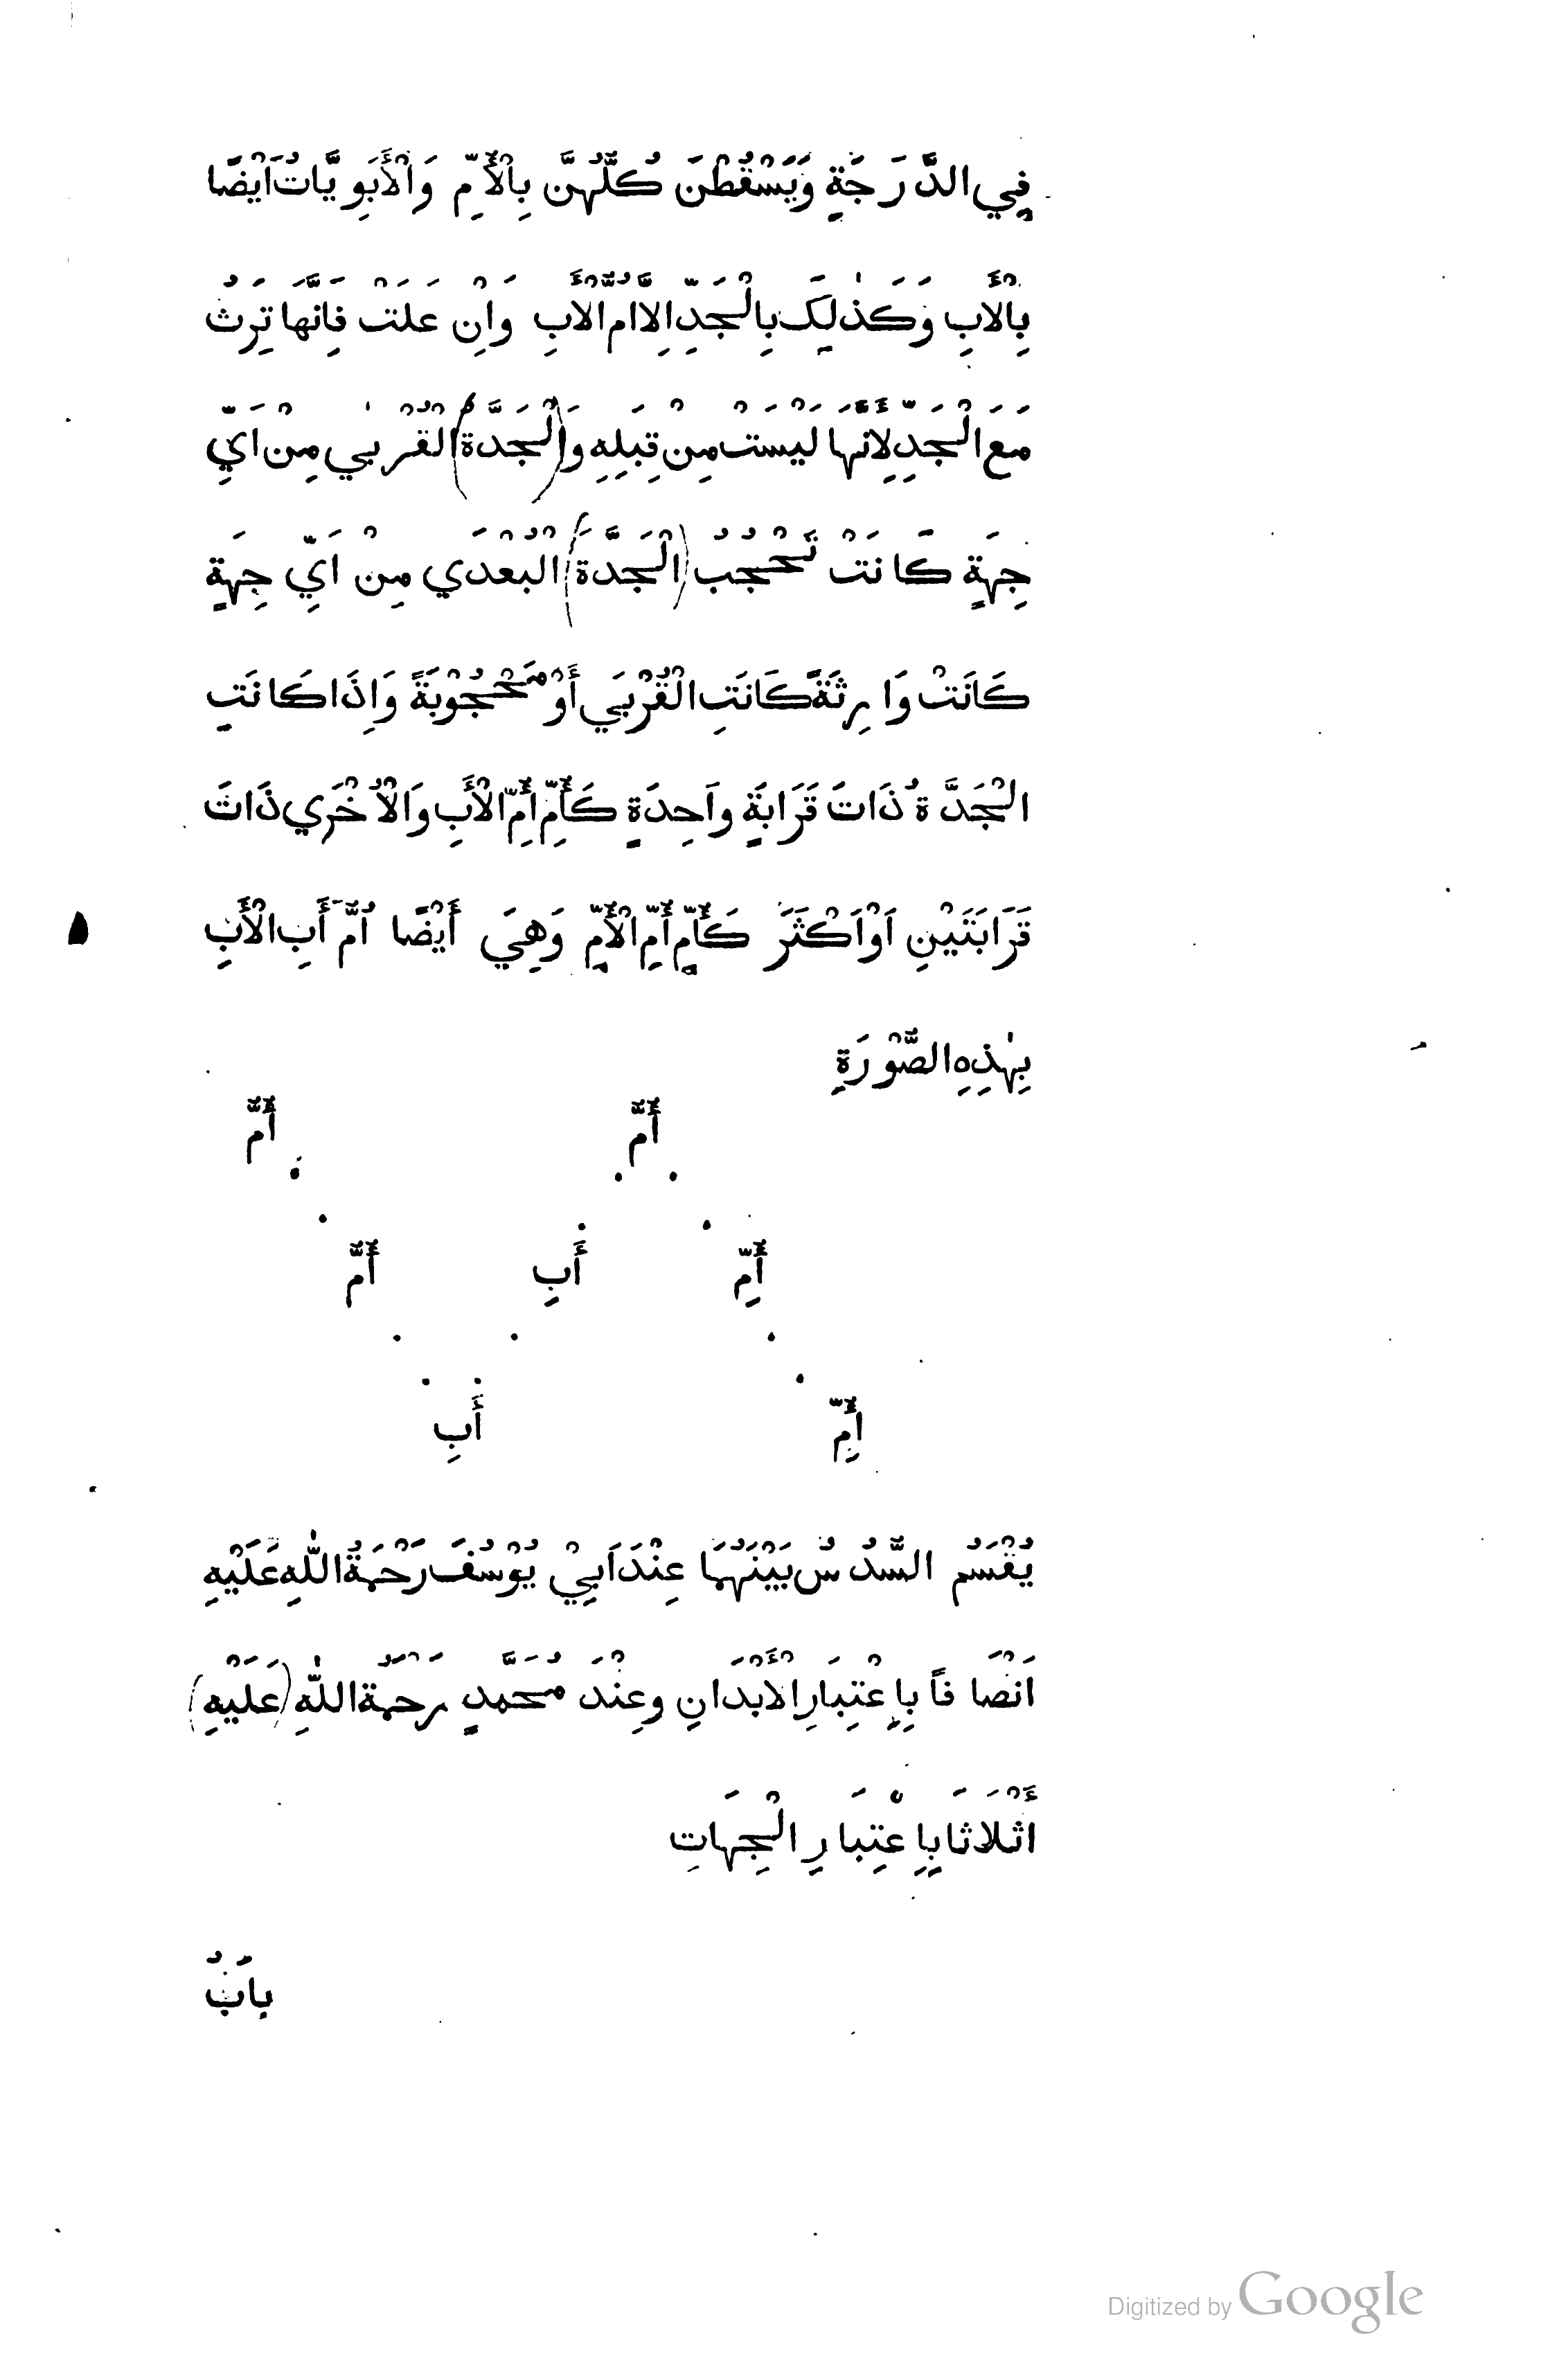 فِي الدَّرَجَةِ وَيَسْقُطْنَ كُلُّهُنَّ بِالْأُمِّ وَالْأَبَوِيَّاتُ اَيْضًا
بِالْأَبِ وَكَذٰلِكَ بِالْجَدِّ اِلَّا اُمُّ الْأَبِ وَاِنْ عَلَتْ فَاِنَّهَا تَرِثُ
مَعَ الْجَدِّ لِأَنَّهَا لَيْسَتْ مِنْ قِبَلِهِ وَ(الْجَدَّةُ) الْقُرْبٰي مِنْ اَيِّ
جِهَةٍ كَانَتْ تَحْجُبُ (الْجَدَّةَ) الْبُعْدَي مِنْ اَيِّ جِهَةٍ
كَانَتْ وَارِثَةً كَانَتِ الْقُرْبَي أَوْ مَحْجُوْبَةً وَاِذَا كَانَتِ
الْجَدَّةُ ذَاتَ قَرَابَةٍ وَاحِدَةٍ كَأُمِّ أُمِّ الْأَبِ وَالْأُخْرَي ذَاتَ
قَرَابَتَيْنِ اَوْ اَكْثَرَ كَأُمِّ أُمِّ الْأُمِّ وَهِيَ أَيْضًا اُمُّ أَبِ الْأَبِ
بِهٰذِهِ الصُّوْرَةِ
أُمُّ أُمُّ
أُمِّ أَبِ أُمُّ
أُمِّ أَبِ
يُقْسَمُ السُّدُسُ بَيْنَهُمَا عِنْدَ اَبِيْ يُوْسُفَ رَحْمَةُ اللّٰهِ عَلَيْهِ
اَنْصَافًا بِاِعْتِبَارِ الْأَبْدَانِ وَعِنْدَ مُحَمَّدٍ رَحْمَةُ اللّٰهِ (عَلَيْهِ)
أَثْلَاثَا بِاِعْتِبَارِ الْجِهَاتِ
بَابُ
Digitized by Google